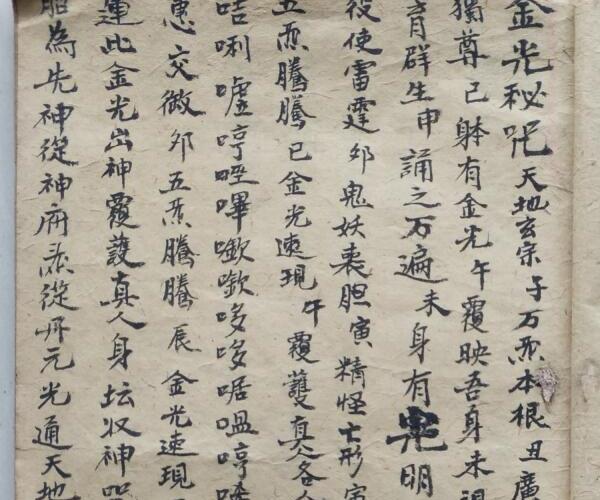 金光秘咒天地玄宗子万炁本根丑廣
獨尊巳躰有金光午覆映吾身未視
育群生申誦之万遍未身有光明
役使雷霆卯鬼妖丧胆寅精怪亡形寅
五炁騰騰巳金光速現午覆護真人各
咭唎嘘哼哑嗶嗷嗷哆哆啹嗢哼
惠交徹卯五炁騰騰辰金光速現
運此金光出神覆護真人身坛収神咒
胆為先神從神府炁從丹元光通天地